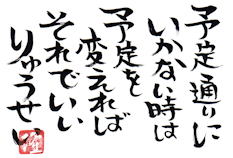 予定通りに
いかない時は
予定を
変えれば
それでいい
りゅうせい